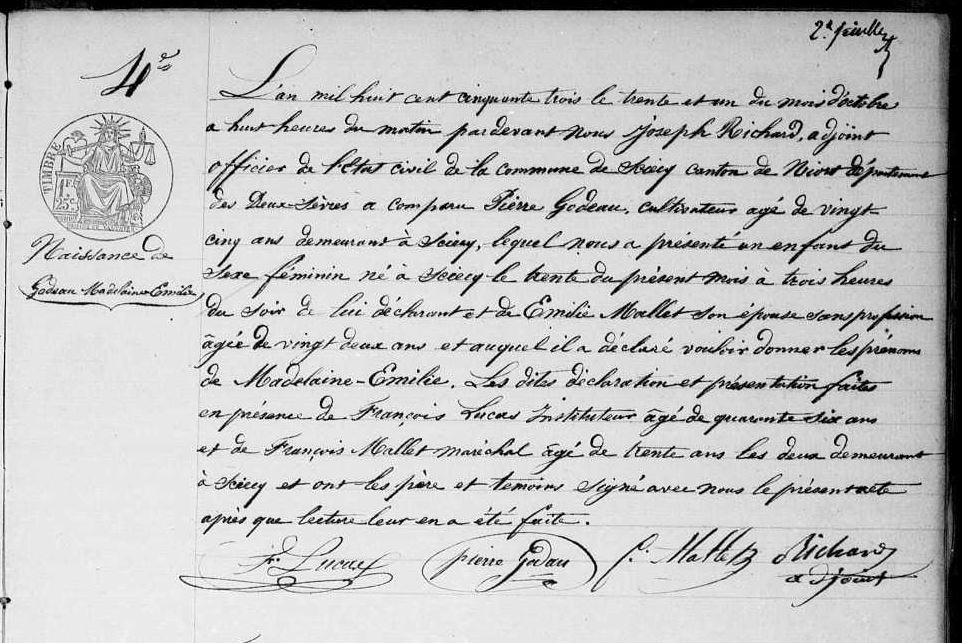 2e feuille
4e
L'an mil huit cent cinquante trois le trente et un du mois d'octobre
a huit heures du matin pardevant nous Joseph Richard, adjoint
officier de l'Etat civil de la commune de Sciecq canton de Niort département
des Deux-Sèvres a comparu Pierre Godeau, cultivateur agé de vingt-
cinq ans demeurant à Sciecq, lequel nous a présenté un enfant du
sexe féminin né à Sciecq le trente du présent mois à trois heures
du soir de lui déclarant et de Emilie Mallet son épouse sans profession
âgée de vingt deux ans et auquel il a déclaré vouloir donner les prénoms
de Madelaine-Emilie. Les dites déclaration et présentation faites
en présence de François Lucas Instituteur âgé de quarante six ans
et de François Mallet maréchal âgé de trente ans les deux demeurant
à Sciecq et ont les père et temoins signé avec nous le présent acte
après que lecture leur en a été faite.
TIMBRE
1F.
25c
Naissance de
Godeau Madelaine-Emilie
Fr. Lucas pierre Godeau f. Mallet Richard
adjoint